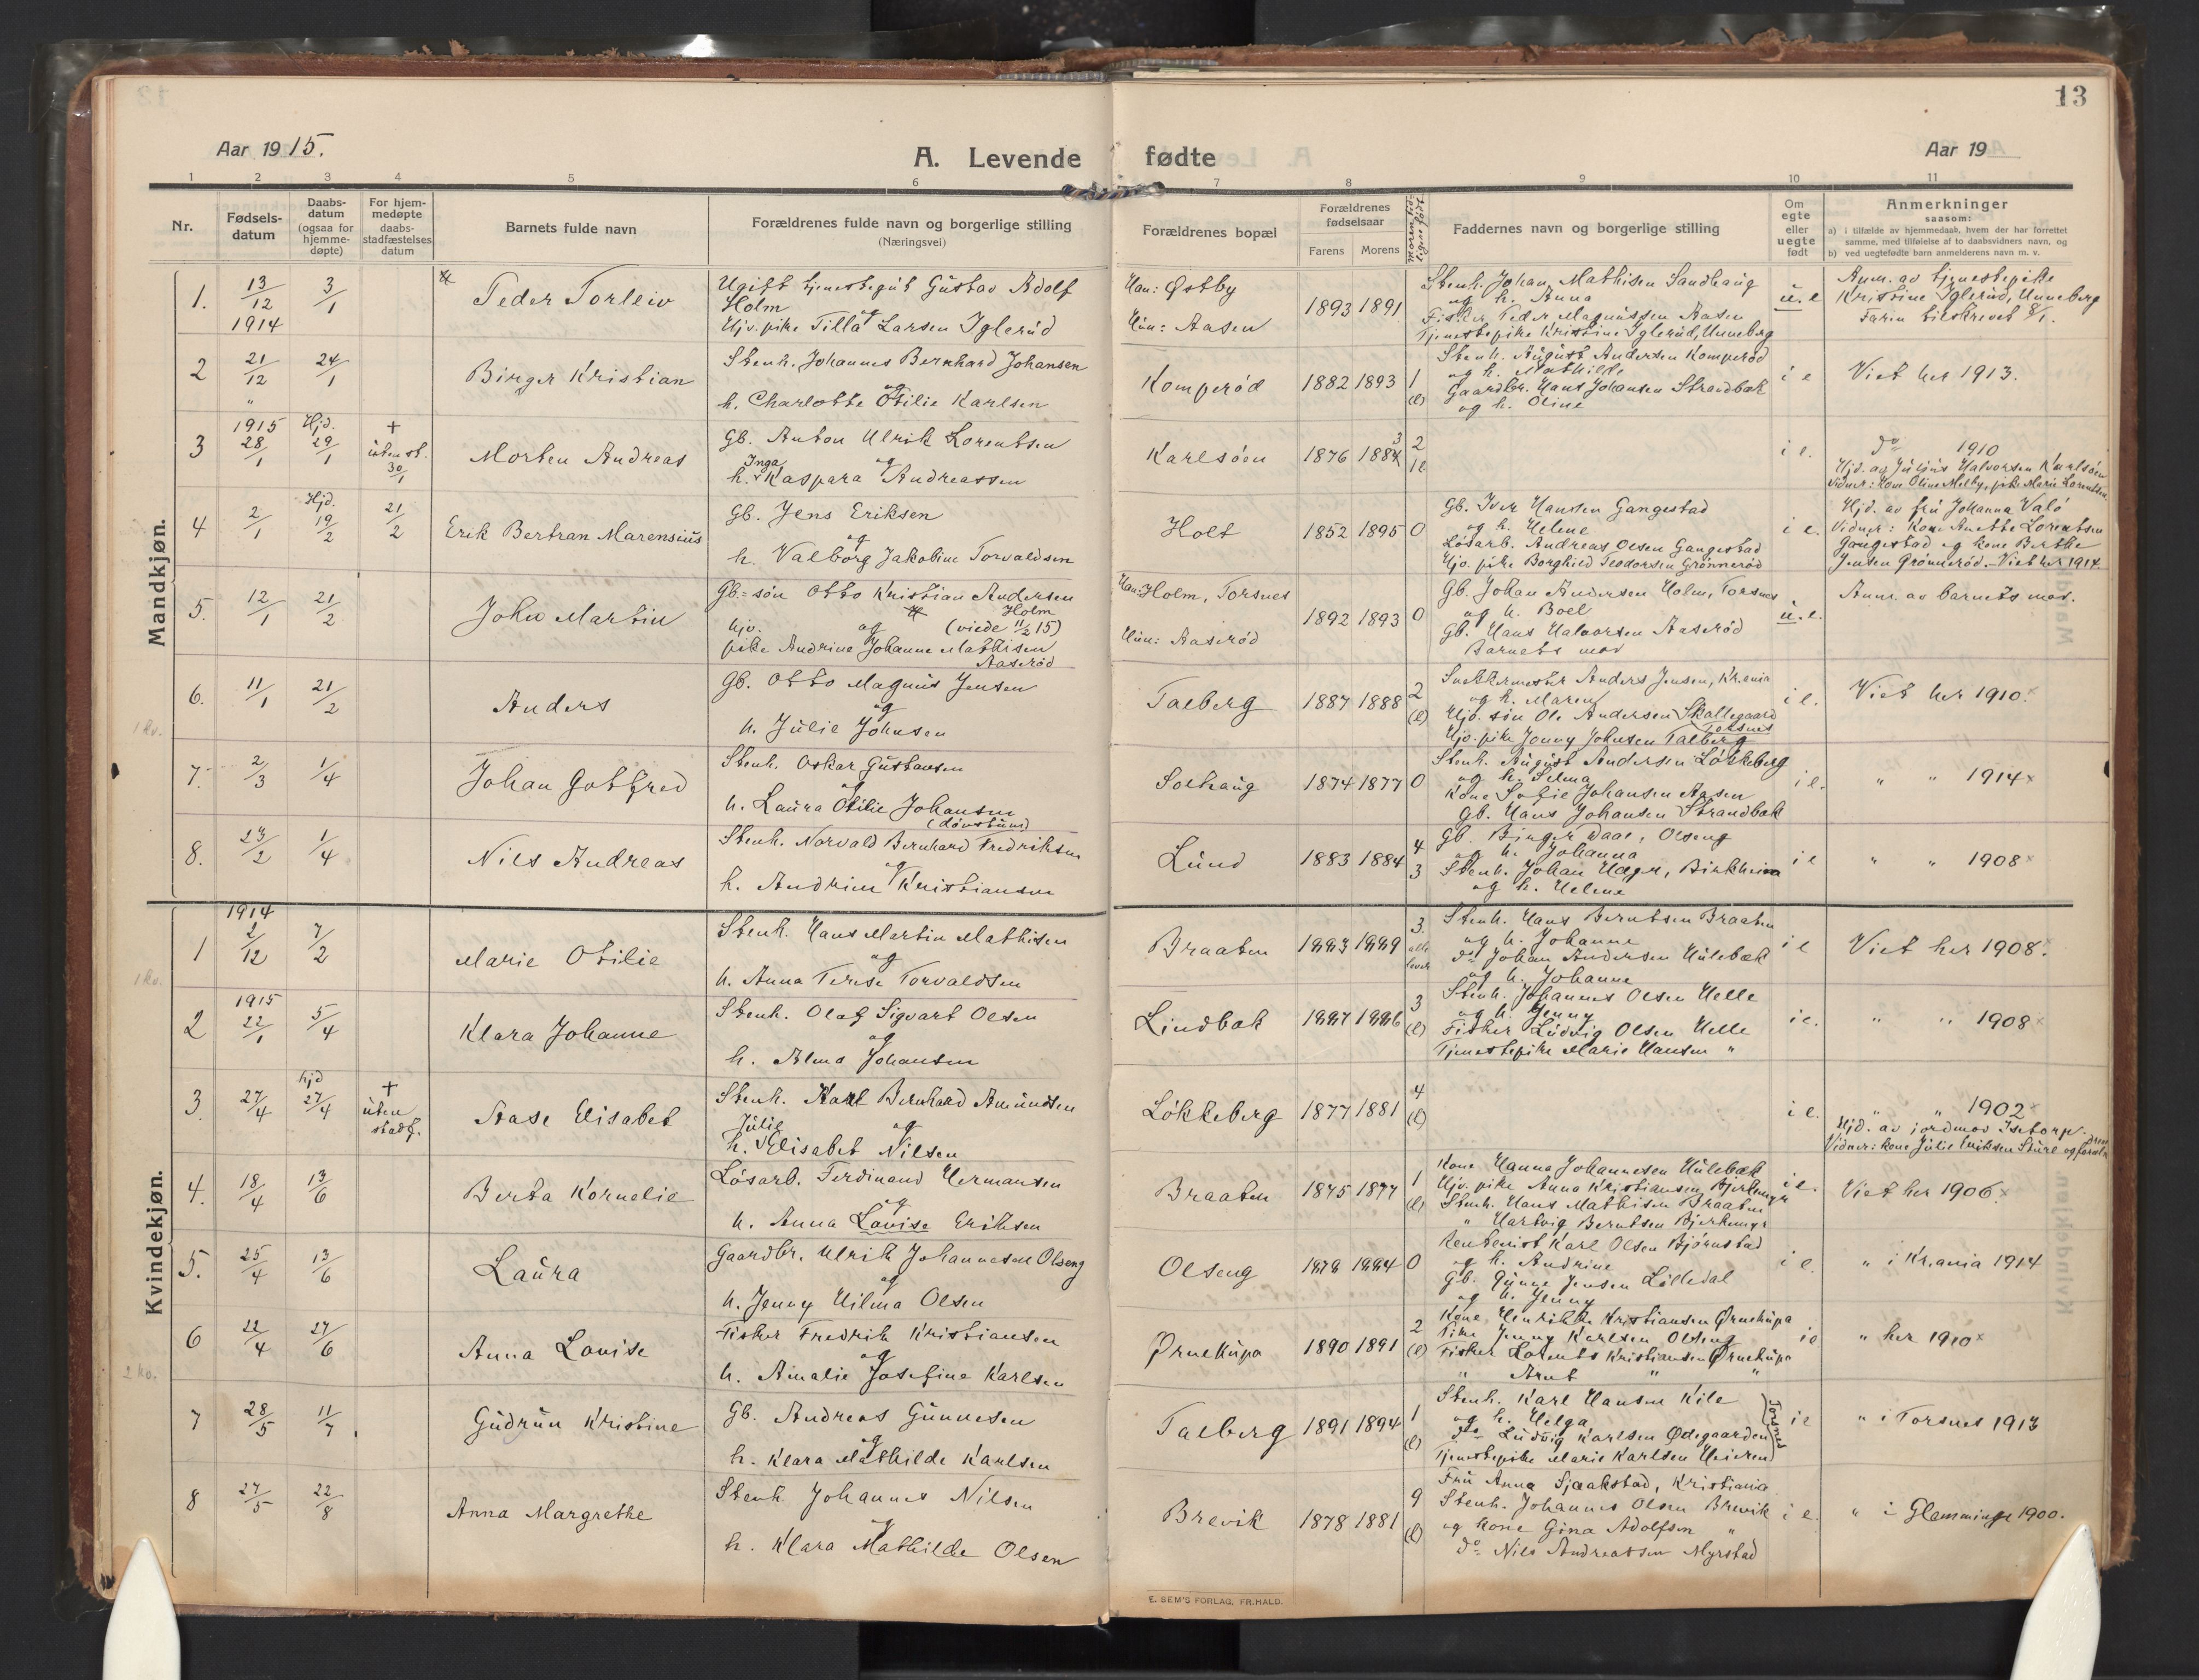 13
Aar 1915.
A. Levende fødte
Aar 19
1 2 3 4 5 6 7 8 9 10 11
Nr.
Fødsels-
datum
Daabs-
datum
(ogsaa for
hjemme-
døpte)
For hjem-
medøpte
daabs-
stadfæstelses
datum
Barnets fulde navn
Forældrenes fulde navn og borgerlige stilling
(Næringsvei)
Forældrenes bopæl
Forældrenes
fødselsaar
Farens Morens
Faddernes navn og borgerlige stilling
Om
egte
eller
uegte
født
Anmerkninger
saasom:
a) i tilfælde av hjemmedaab, hvem der har forrettet
samme, med tilføielse af to daabsvidners navn, og
b) ved uegtefødte barn anmelderens navn m. v.
Mandkjøn.
1. 13/12 1914 3/1
Peder Torleiv
Ugift tjenestegut Gustav Adolf
Holm
og
Hjv. pike Tilla Larsen Iglerud
Han: Østby
Hun: Aasen
1893 1891
Stenh. Johan Mathisen Sandhaug
og h. Anna
Fisker Peder Magnussen Aasen
Tjenestepike Kristine Iglerud, Unneberg
u.e
Anm. av tjenestepike
Kristine Iglerud, Unneberg
Faren tilskrevet 8/1.
2 21/12 " 24/1
Birger Kristian
Stenh. Johannes Bernhard Johansen
og
h. Charlotte Otilie Karlsen
Komperød
1882 1893 1 (l)
Stenh. August Andersen Komperød
og h. Mathilde
Gaardbr. Hans Johansen Strandbak
og h. Oline
i e
Viet her 1913.
3 1915 28/1 Hjd. 29/1 + uten st. 30/1
Morten Andreas
Gb. Anton Ulrik Lorentsen
Inga og
h. Kaspara Andreassen
Karlsøen
1876 1884 3 2 1l
i e.
do 1910
Hjd. av Julius Halvorsen Karlsøen
Vidner: Kone Oline Melby, pike Marie Lorentsen.
4 2/1 Hjd. 19/2 21/2
Erik Bertran Marensius
Gb. Jens Eriksen
og
h. Valborg Jakobine Torvaldsen
Holt
1852 1895 0
Gb. Iver Hansen Gangestad
og h. Helene
Løsarb. Andreas Olsen Gangestad
Hjv. pike Borghild Teodorsen Grønnerød
i e.
Hjd. av fru Johanna Valø
Vidner: Kone Anette Lorentsen
Gangestad og kone Berthe
Jensen Grønnerød. Viet her 1914
5. 12/1 21/2
John Martin
Gb.=søn Otto Kristian Andersen
Holm
hjv. og (viede 11/2 15)
pike Andrine Johanne Mathisen
Aaserød
Han: Holm, Torsnes
Hun: Aaserød
1892 1893 0
Gb. Johan Andersen Holm, Torsnes
og h. Boel
Gb. Hans Halvorsen Aaserød
Barnets mor
u.e.
Anm. av barnets mor.
6. 11/1 21/2
Anders
Gb. Otto Magnus Jensen
og
h. Julie Johnsen
Talberg
1887 1888 2 (l)
Snekkermester Anders Jensen, Kr.ania
og h. Maren
Hjv. søn Ole Andersen Skallegaard
Torsnes
Hjv. pike Jenny Johnsen Talberg
i e.
Viet her 1910.
1 kv.
7. 2/3 1/4
Johan Gotfred
Stenh. Oskar Gustavsen
og
h. Laura Otilie Johansen
(døvstum)
Solhaug
1874 1877 0
Stenh. August Andersen Løkkeberg
og h. Selma
Kone Sofie Johansen Aasen
Gb. Hans Johansen Strandbak
i e.
" " 1914
8. 23/2 1/4
Nils Andreas
Stenh. Norvald Bernhard Fredriksen
og
h. Andrine Kristiansen
Lund
1883 1884 4 3
Gb. Birger Daae, Olseng
og h. Johanna
Stenh. Johan Hager, Birkheim
og h. Helene
i e
" " 1908
Kvindekjøn.
1 1914 2/12 7/2
Marie Otilie
Stenh. Hans Martin Mathisen
og
h. Anna Terese Torvaldsen
Braaten
1883 1889 3.
Stenh. Hans Berntsen Braaten
og h. Johanne
do Johan Andersen Hulebæk
og h. Johanne
i e
Viet her 1908.
1 kv.
2 1915 22/1 5/4
Klara Johanne
Stenh. Olaf Sigvart Olsen
og
h. Alma Johansen
Lindbak
1887 1886 3 (l)
Stenh. Johannes Olsen Helle
og h. Jenny
Fisker Ludvig Olsen Helle
Tjenestepike Marie Hansen "
i e.
" " 1908
3. 27/4 hjd 27/4 + uten stadf.
Aase Elisabet
Stenh. Karl Bernhard Amundsen
Julie og
h. Elisabet Nilsen
Løkkeberg
1877 1881 4 (l)
i e.
" " 1902
Hjd. av jordmor Isetorp.
Vidner: kone Julie Eriksen Sture og faren
4. 18/4 13/6
Berta Kornelie
Løsarb. Ferdinand Hermansen
og
h. Anna Lovise Eriksen
Braaten
1875 1877 1 (l)
Kone Hanna Johannesen Hulebæk
Hjv. pike Anna Kristiansen Bjerkemyr
Stenh. Hans Mathisen Braaten
" Hartvig Berntsen Bjerkemyr
i e.
Viet her 1906.
5. 25/4 13/6
Laura
Gaardbr. Ulrik Johannesen Olseng
og
h. Jenny Hilma Olsen
Olseng
1878 1884 0
Rentenist Karl Olsen Bjørnstad
og h. Andrine
Gb. Gunne Jensen Lilledal
og h. Jenny
i e.
" i Kr.ania 1914
6 22/4 27/6
Anna Lovise
Fisker Fredrik Kristiansen
og
h. Amalie Josefine Karlsen
Ørnekupa
1890 1891 2 (l)
Kone Henrikke Kristiansen Ørnekupa
Pike Jenny Karlsen Olseng
Fisker Lorents Kristiansen Ørnekupa
" Arnt " "
i e
" her 1910
2 kv.
7 28/5 11/7
Gudrun Kristine
Gb. Andreas Gunnesen
og
h. Klara Mathilde Karlsen
Talberg
1891 1894 1 (l)
Stenh. Karl Hansen Kile
og h. Helga
do Ludvig Karlsen Ødegaarden
Tjenestepike Marie Karlsen Heieren
Torsnes
i e
" i Torsnes 1913
8 27/5 22/8
Anna Margrethe
Stenh Johannes Nilsen
og
h. Klara Mathilde Olsen
Brevik
1878 1881 9 (l)
Fru Anna Sjaakstad, Kristiania
Stenh. Johannes Olsen Brevik
og kone Gina Adolfsen "
do Nils Andreassen Myrstad
i e.
" i Glemminge 1900.
E. SEM'S FORLAG, FR.HALD.